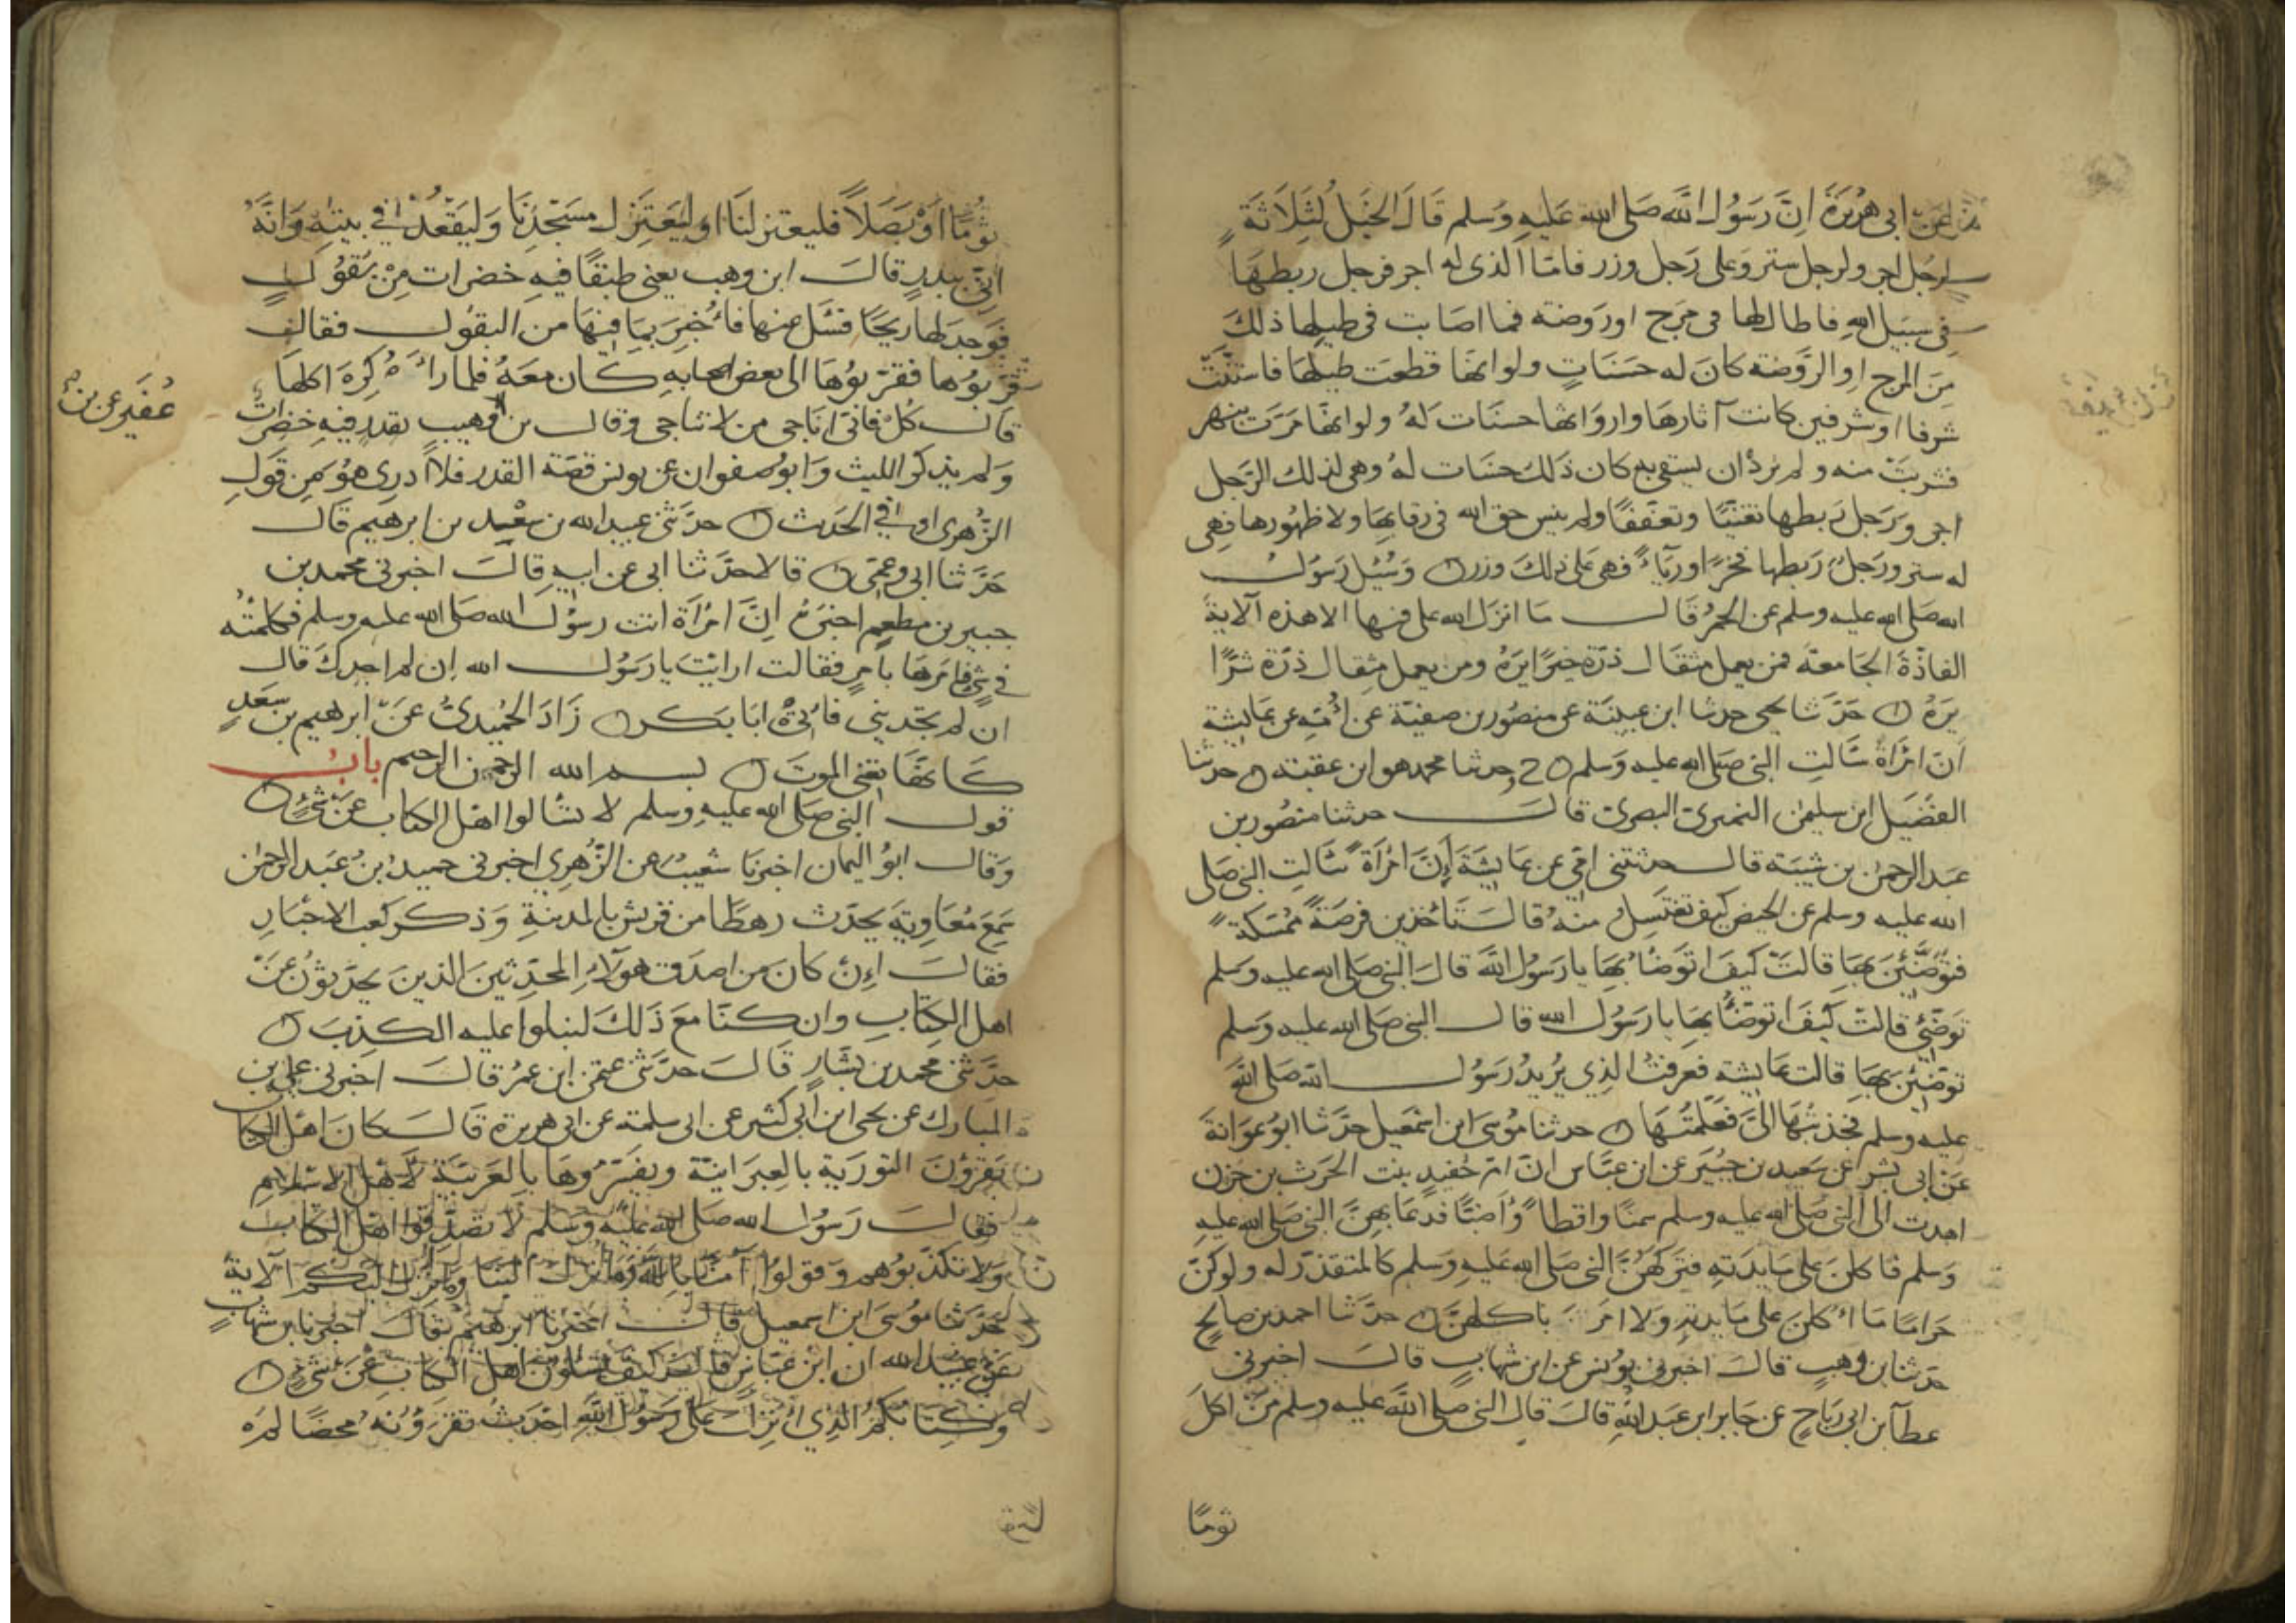 عن ابى هريرة ان رسول الله صلى الله عليه وسلم قال الخيل لثلاثة
لرجل اجر ولرجل ستر وعلى رجل وزر فاما الذى له اجر فرجل ربطها
فى سبيل الله فاطال لها فى مرج او روضة فما اصابت فى طيلها ذلك
من المرج او الروضة كان له حسنات ولو انها قطعت طيلها فاستنت
شرفا او شرفين كانت آثارها واروائها حسنات له ولو انها مرت بنهر
فشربت منه ولم يرد ان يسقى به كان ذلك حسنات له وهى لذلك الرجل
اجر ورجل ربطها تغنيا وتعففا ولم ينس حق الله فى رقابها ولا ظهورها فهى
له ستر ورجل ربطها فخرا ورياء فهى على ذلك وزر ٥ وسئل رسول
الله صلى الله عليه وسلم عن الحمر قال ما انزل الله على فيها الا هذه الآية
الفاذة الجامعة فمن يعمل مثقال ذرة خيرا يره ومن يعمل مثقال ذرة شرا
يره ٥ حدثنا يحيى حدثنا ابن عيينة عن منصور بن صفية عن امه عن عايشة
ان امرأة سالت النبى صلى الله عليه وسلم ٥ ح وحدثنا محمد هو ابن عقبة ٥ حدثنا
الفضيل ابن سليمن النميرى البصرى قال حدثنا منصور بن
عبد الرحمن بن شيبة قال حدثتنى امى عن عايشة ان امرأة سالت النبى صلى
الله عليه وسلم عن الحيض كيف تغتسل منه قال تاخذين فرصة ممسكة
فتوضئين بها قالت كيف اتوضأ بها يا رسول الله قال النبى صلى الله عليه وسلم
توضئى قالت كيف اتوضأ بها يا رسول الله قال النبى صلى الله عليه وسلم
توضئين بها قالت عايشة فعرفت الذى يريد رسول الله صلى الله
عليه وسلم فجذبتها الى فعلمتها ٥ حدثنا موسى ابن اسمعيل حدثنا ابو عوانة
عن ابى بشر عن سعيد بن جبير عن ابن عباس ان ام حفيد بنت الحرث بن حزن
اهدت الى النبى صلى الله عليه وسلم سمنا واقطا واضبا فدعا بهن النبى صلى الله عليه
وسلم فاكلن على مايدته فتركهن النبى صلى الله عليه وسلم كالمتقذر له ولو كن
حراما ما اكلن على مايدته ولا امر باكلهن ٥ حدثنا احمد بن صالح
حدثنا بن وهب قال اخبرنى يونس عن ابن شهاب قال اخبرنى
عطآ بن ابى رباح عن جابر ابن عبد الله قال قال النبى صلى الله عليه وسلم من اكل
ثوما
ثوما او بصلا فليعتزلنا او ليعتزل مسجدنا وليقعد فى بيته وانه
اتى ببدر قال ابن وهب يعنى طبقا فيه خضرات من بقول
فوجد لها ريحا فسئل عنها فاخبر بما فيها من البقول فقال
قربوها فقربوها الى بعض اصحابه كان معه فلما رآه كره اكلها
قال كل فانى اناجى من لا تناجى وقال بن وهيب بقدر فيه خضرات
ولم يذكر الليث وابو صفوان عن يونس قصة القدر فلا ادرى هو من قول
الزهرى او فى الحديث ٥ حدثنى عبيد الله بن سعيد بن ابرهيم قال
حدثنا ابى وعمى ٥ قالا حدثنا ابى عن ابيه قال اخبرنى محمد بن
جبير بن مطعم اخبره ان امرأة اتت رسول الله صلى الله عليه وسلم فكلمته
فى شئ فامرها بامر فقالت ارايت يا رسول الله ان لم اجدك قال
ان لم تجدينى فاتى ابا بكر ٥ زاد الحميدى عن ابرهيم بن سعد
كانها تعنى الموت ٥ بسم الله الرحمن الرحيم باب
قول النبى صلى الله عليه وسلم لا تسالوا اهل الكتاب عن شئ ٥
وقال ابو اليمان اخبرنا شعيب عن الزهرى اخبرنى حميد بن عبد الرحمن
سمع معاوية يحدث رهطا من قريش بالمدينة وذكر كعب الاحبار
فقال ان كان من اصدق هولاء المحدثين الذين يحدثون عن
اهل الكتاب وان كنا مع ذلك لنبلوا عليه الكذب ٥
حدثنى محمد بن بشار قال حدثنى عثمن ابن عمر قال اخبرنى على بن
المبارك عن يحيى ابن ابى كثير عن ابى سلمة عن ابى هريرة قال كان اهل الكتا
يقرؤن التورية بالعبرانية ويفسروها بالعربية لاهل الاسلام
فقال رسول الله صلى الله عليه وسلم لا تصدقوا اهل الكتاب
ولا تكذبوهم وقولوا آمنا بالله وما انزل الينا وما انزل اليكم الآية
حدثنا موسى ابن اسمعيل قال اخبرنا ابرهيم قال اخبرنا بن شهاب
عن عبيد الله ان ابن عباس قال كيف تسلون اهل الكتاب عن شئ ٥
وكتابكم الذى انزل على رسول الله احدث تقرؤنه محضا لم
عفير عن بن